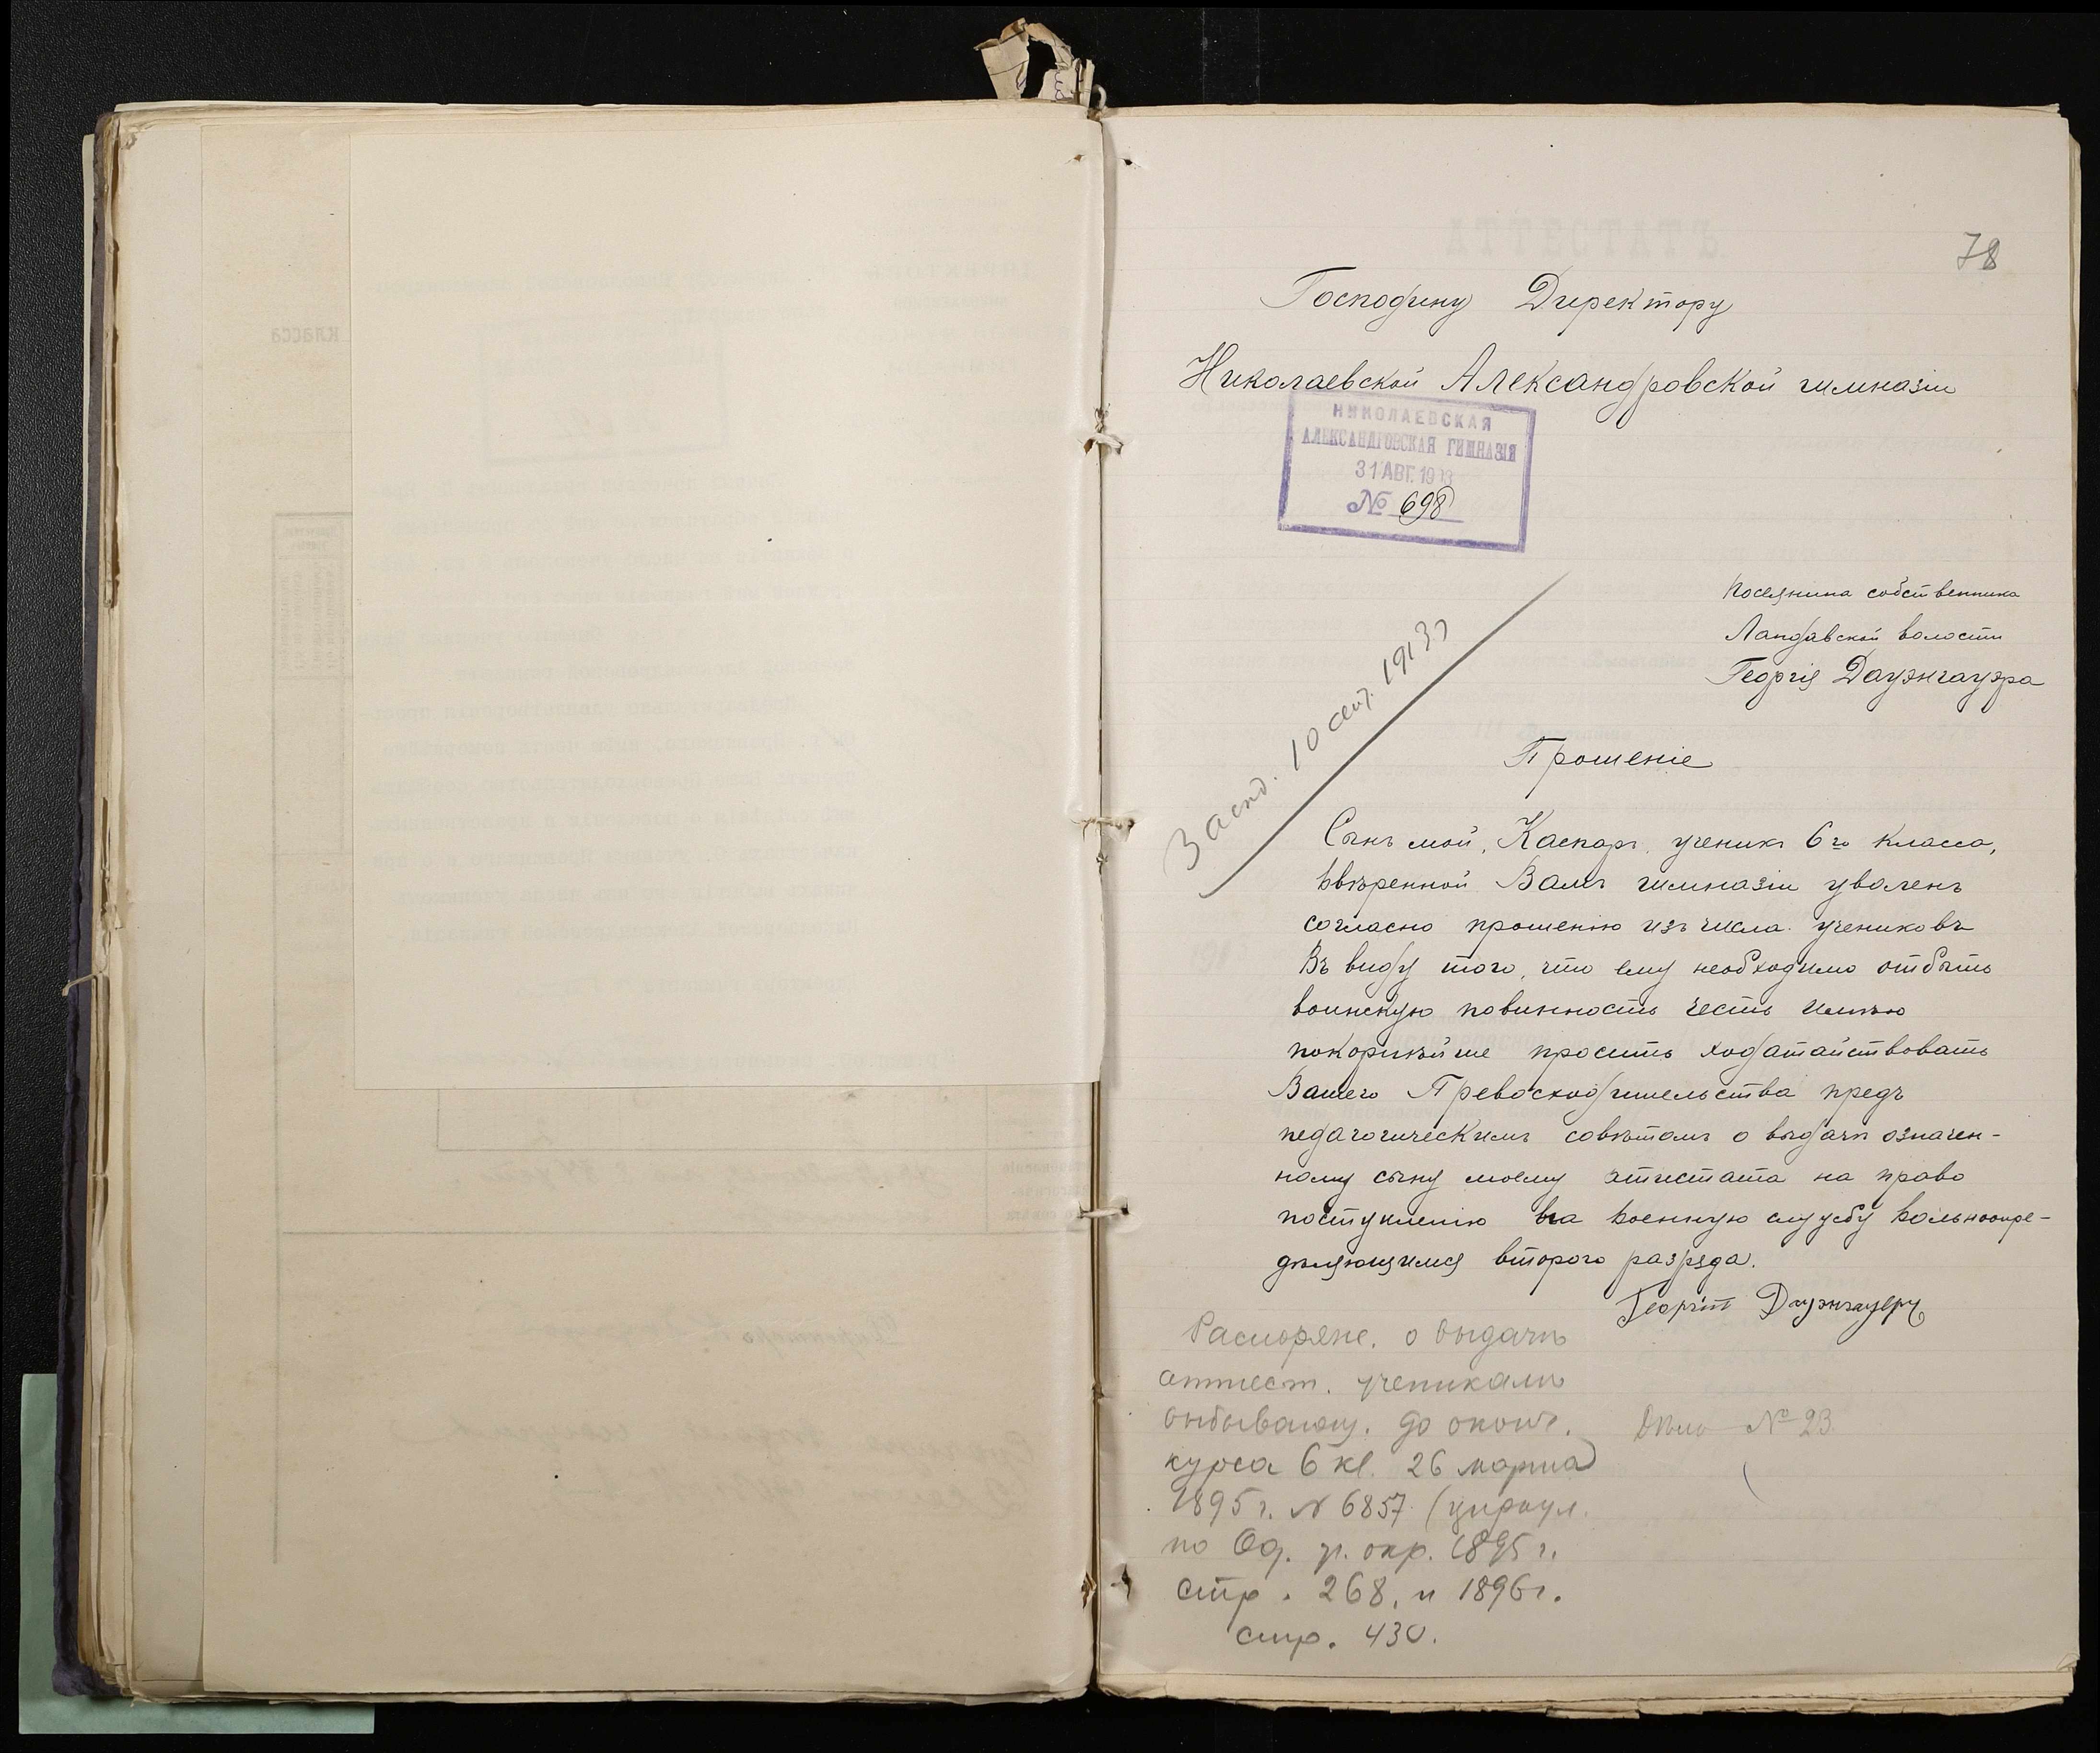 78
Господину Директору
Николаевской Александровской гимназіи
НИКОЛАЕВСКАЯ
АЛЕКСАНДРОВСКАЯ ГИМНАЗІЯ
31 АВГ. 1913
№ 698
Поселянина собственника
Ландавской волости
Георгія Дауэнгауэра
Засѣд. 10 сент. 1913 г
Прошеніе
Сынъ мой, Каспаръ, ученикъ 6го класса,
ввѣренной Вамъ гимназіи уволенъ
согласно прошенію изъ числа учениковъ
Въ виду того, что ему необходимо отбыть
воинскую повинность честь имѣю
покорнѣйше просить ходатайствовать
Вашего Превосходительства предъ
педагогическимъ совѣтомъ о выдачи означен-
ному сыну моему аттестата на право
поступленію на военную службу вольноопре-
дѣляющимся второго разряда.
Георгій Дауэнгауеръ
Распоряже. о выдачѣ
аттест. ученикамъ
выбывающ. до оконч.
курса 6 кл. 26 марта
1895 г. № 6857 (циркул.
по Од. у. окр. 1895 г.
стр. 268, и 1896 г.
стр. 430.
Дѣло № 23.